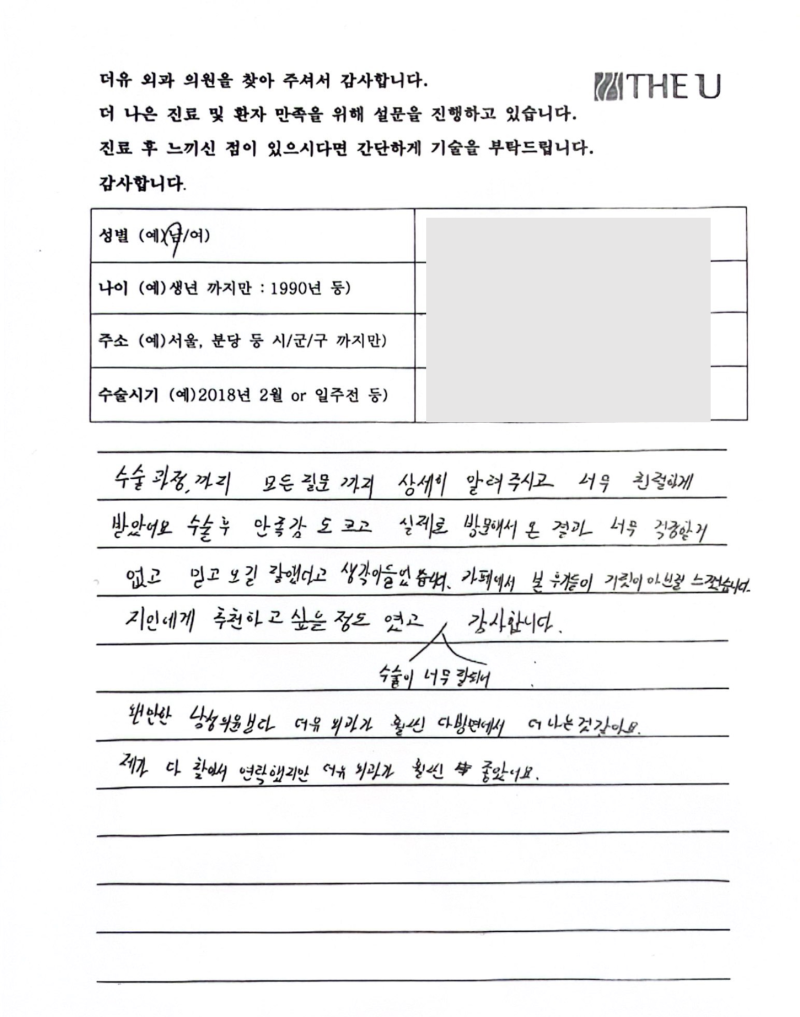 더유 외과 의원을 찾아 주셔서 감사합니다.
THE U
더 나은 진료 및 환자 만족을 위해 설문을 진행하고 있습니다.
진료 후 느끼신 점이 있으시다면 간단하게 기술을 부탁드립니다.
감사합니다.
성별 (예)(남/여)
나이 (예)생년 까지만 : 1990년 등)
주소 (예)서울, 분당 등 시/군/구 까지만)
수술시기 (예)2018년 2월 or 일주전 등)
수술 과정,까지 모든 질문 까지 상세히 알려주시고 너무 친절하게
받았어요 수술후 만족감 도 크고 실제로 방문해서 온 결과 너무
없고 믿고 오길 잘했다고 생각이들었습니다. 카페에서 본 후기들이 거짓이 아닌걸 느꼈습니다.
지인에게 추천하고 싶을 정도 였고 감사합니다.
수술이 너무 잘되서
왠만한 남성의원보다 더유 외과가 훨씬 다방면에서 더 나은것같아요.
제가 다 찾아서 연락했지만 더유 외과가 훨씬 좋았어요.